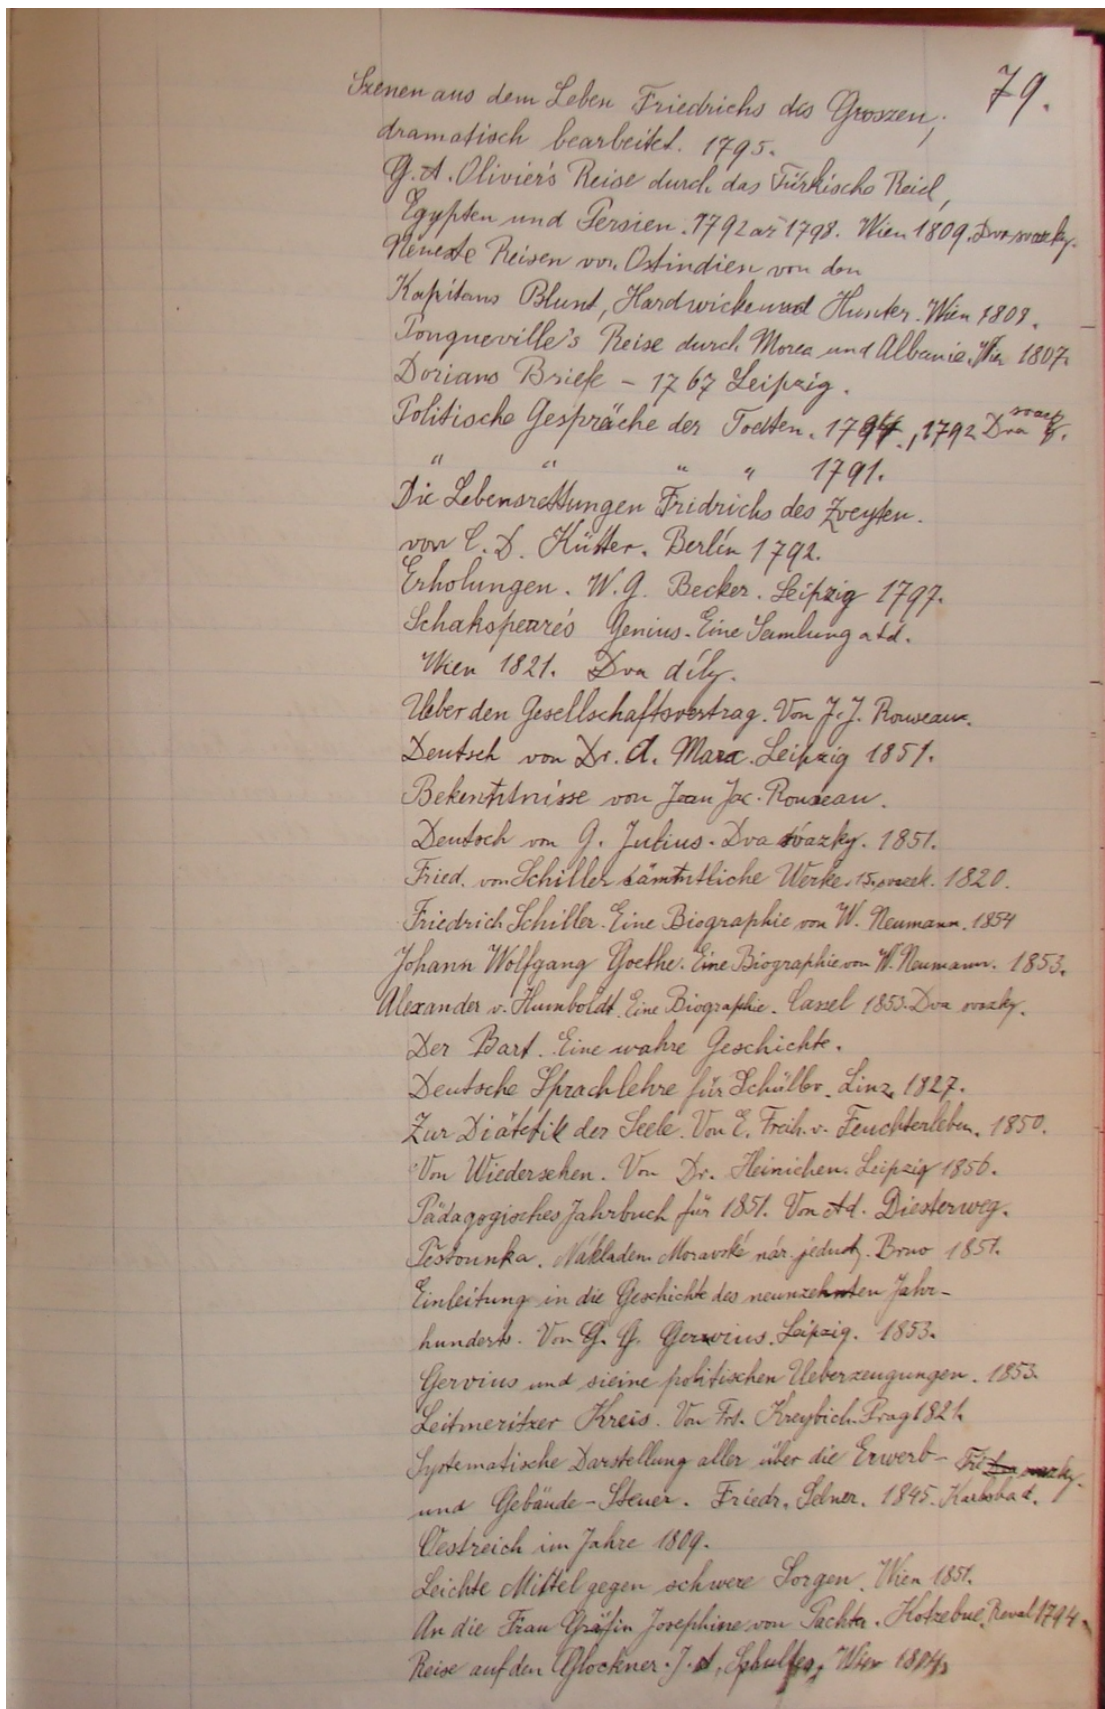 79.
Szenen aus dem Leben Friedrichs des Groszen,
dramatisch bearbeitet. 1795.
G. A. Olivier's Reise durch das Türkische Reich,
Egypten und Persien. 1792 až 1798. Wien 1809. Dva svazky.
Neueste Reisen von Ostindien von den
Kapitans Blunt, Hardwicke und Hunter. Wien 1809.
Pongneville's Reise durch Morea und Albanie. Wien 1807.
Dorians Briefe - 1767 Leipzig.
Politische Gespräche der Todten. , 1792 Dva svazky.
" " " " 1791.
Die Lebensrettungen Fridrichs des Zveyten.
von C. D. Kütter. Berlin 1792.
Erholungen. W. G. Becker. Leipzig 1797.
Schakspeare's Genius. Eine Samlung atd.
Wien 1821. Dva díly.
Ueber den Gesellschaftsvertrag. Von J. J. Rousseau.
Deutsch von Dr. A. Marx. Leipzig 1851.
Bekentnisse von Jean Jac. Rousseau.
Deutsch von G. Julius. Dva svazky. 1851.
Fried. von Schiller sämtliche Werke. 15. svazek. 1820.
Friedrich Schiller. Eine Biographie von W. Neumann. 1854
Johann Wolfgang Goethe. Eine Biographie von W. Neumann. 1853.
Alexander v. Humboldt. Eine Biographie. Cassel 1853. Dva svazky.
Der Bart. Eine wahre Geschichte.
Deutsche Sprachlehre für Schüller. Linz. 1827.
Zur Diätetik der Seele. Von E. Freih. v. Feuchterleben. 1850.
Von Wiedersehen. Von Dr. Heinichen. Leipzig 1856.
Pädagogisches Jahrbuch für 1851. Von Ad. Diesterweg.
Pěstounka. Nákladem Moravské nár. jednoty. Brno 1851.
Einleitung in die Geschichte des neunzehnten Jahr-
hunderts. Von G. G. Gervius. Leipzig. 1853.
Gervius und sieine politischen Ueberzeugungen. 1853.
Leitmeritzer Kreis. Von Frt. Kreybich. Prag 1821.
Systematische Darstellung aller über die Erwerb- Tři svazky.
und Gebäude-Steuer. Friedr. 1845. Karlsbad.
Oestreich im Jahre 1809.
Leichte Mittel gegen schwere Sorgen. Wien 1851.
An die Frau Gräfin Josephine von Pachta. Kotzebue. Reval 1794.
Reise auf den Glockner. J. A. Schultes. Wien 1804.